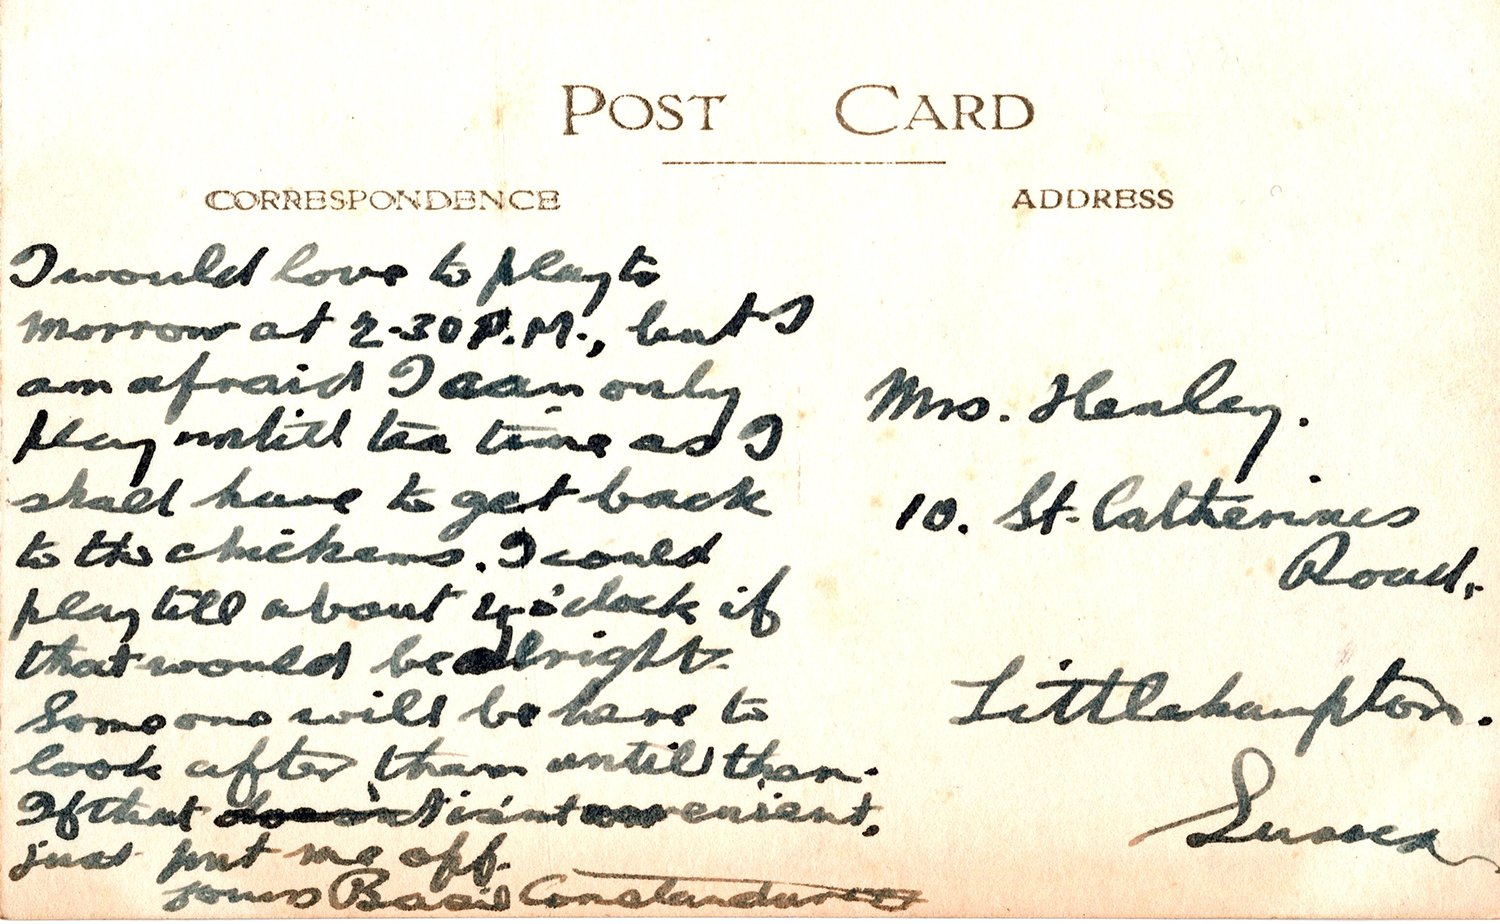 POST CARD
CORRESPONDENCE
ADDRESS
I would love to play to
morrow at 2-30 P.M., but I
am afraid I can only
play untill tea time as I
shall have to get back
to the chickens. I could
play till about 4 o'clock if
that would be alright.
Someone will be here to
look after them until then.
If that is'nt convenient,
just put me off.
yours Basil Constanduros
Mrs. Henley.
10. St. Catherines
Road,
Littlehampton.
Sussex